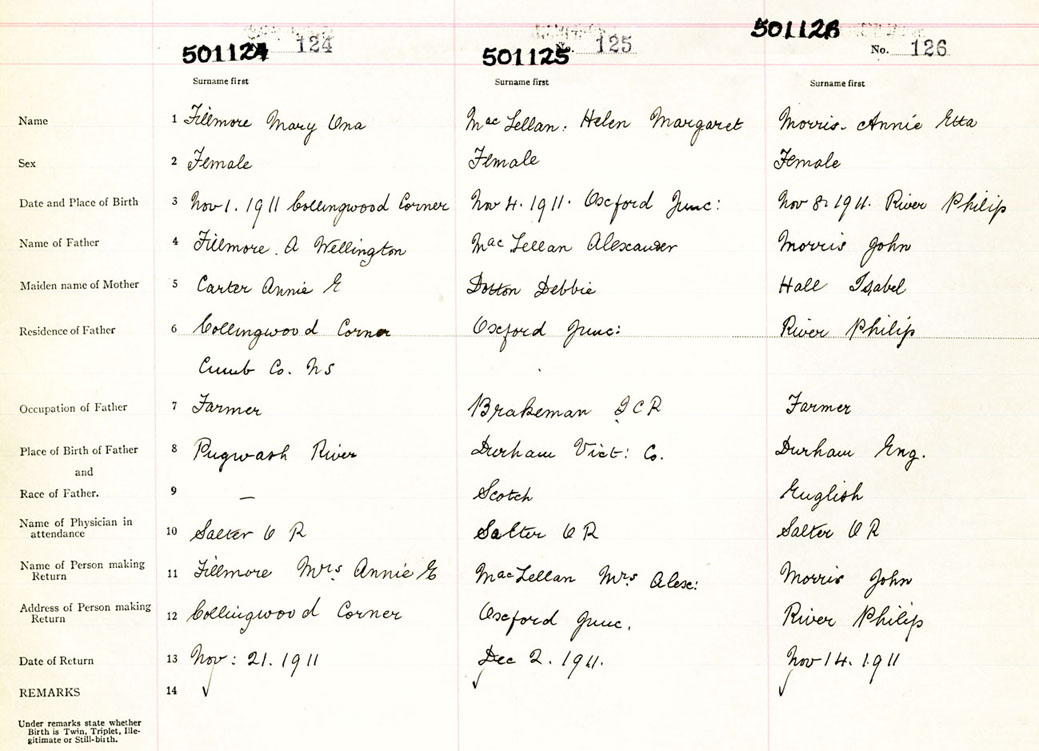 501124 124 501125 No. 125 501126 No. 126
Surname first Surname first Surname first
Name 1 Fillmore Mary Una MacLellan: Helen Margaret Morris- Annie Etta
Sex 2 Female Female Female
Date and Place of Birth 3 Nov 1. 1911 Collingwood Corner Nov 4. 1911. Oxford Junc: Nov 8. 1911. River Philip
Name of Father 4 Fillmore. A Wellington MacLellan Alexander Morris John
Maiden name of Mother 5 Carter Annie E Debbie Hall Isabel
Residence of Father 6 Collingwood Corner Oxford Junc: River Philip
Cumb Co. NS
Occupation of Father 7 Farmer Brakeman I C R Farmer
Place of Birth of Father 8 Pugwash River Durham Vict: Co. Durham Eng.
and
Race of Father. 9 — Scotch English
Name of Physician in
attendance 10 Salter C R Salter C R Salter C R
Name of Person making
Return 11 Fillmore Mrs Annie E MacLellan Mrs Alex: Morris John
Address of Person making
Return 12 Collingwood Corner Oxford Junc. River Philip
Date of Return 13 Nov: 21. 1911 Dec 2. 1911. Nov 14. 1911
REMARKS 14 ✓ ✓ ✓
Under remarks state whether
Birth is Twin, Triplet, Ille-
gitimate or Still-birth.